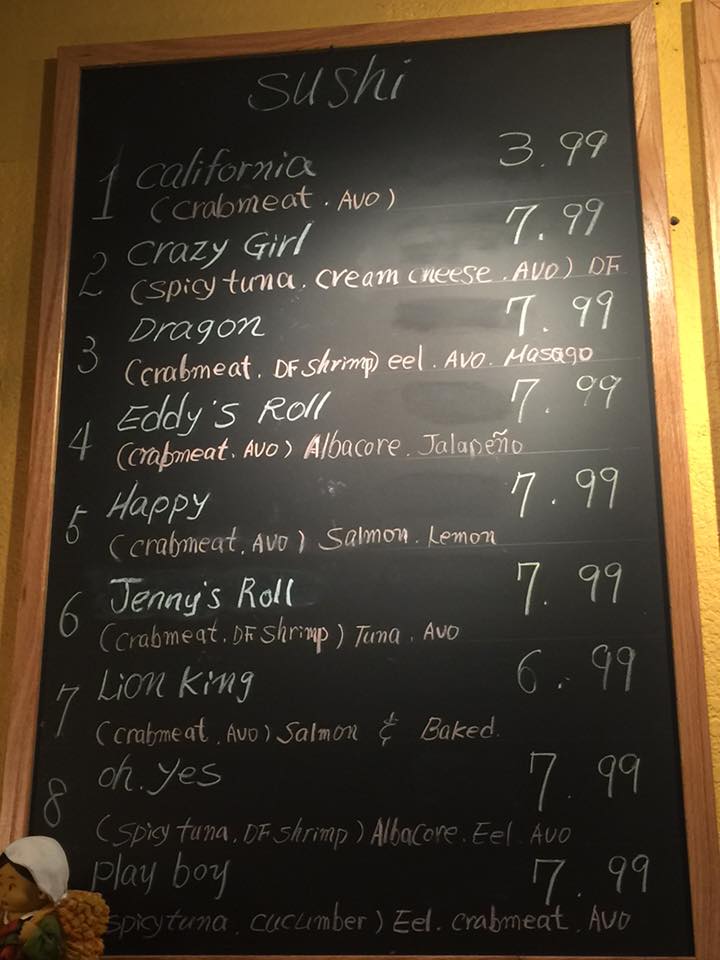 sushi
1 California 3.99
(crabmeat. AVO)
2 Crazy Girl 7.99
(spicy tuna. cream cheese. AVO) DF
3 Dragon 7.99
(crabmeat. DF shrimp) eel. AVO. Masago
4 Eddy's Roll 7.99
(crabmeat. AVO) Albacore. Jalapeño
5 Happy 7.99
(crabmeat. AVO) Salmon. Lemon
6 Jenny's Roll 7.99
(crabmeat. DF Shrimp) Tuna. AVO
7 Lion King 6.99
(crabmeat. AVO) Salmon & Baked.
8 oh. yes 7.99
(spicy tuna. DF shrimp) Albacore. Eel. AVO
play boy 7.99
spicy tuna. cucumber) Eel. crabmeat. AVO